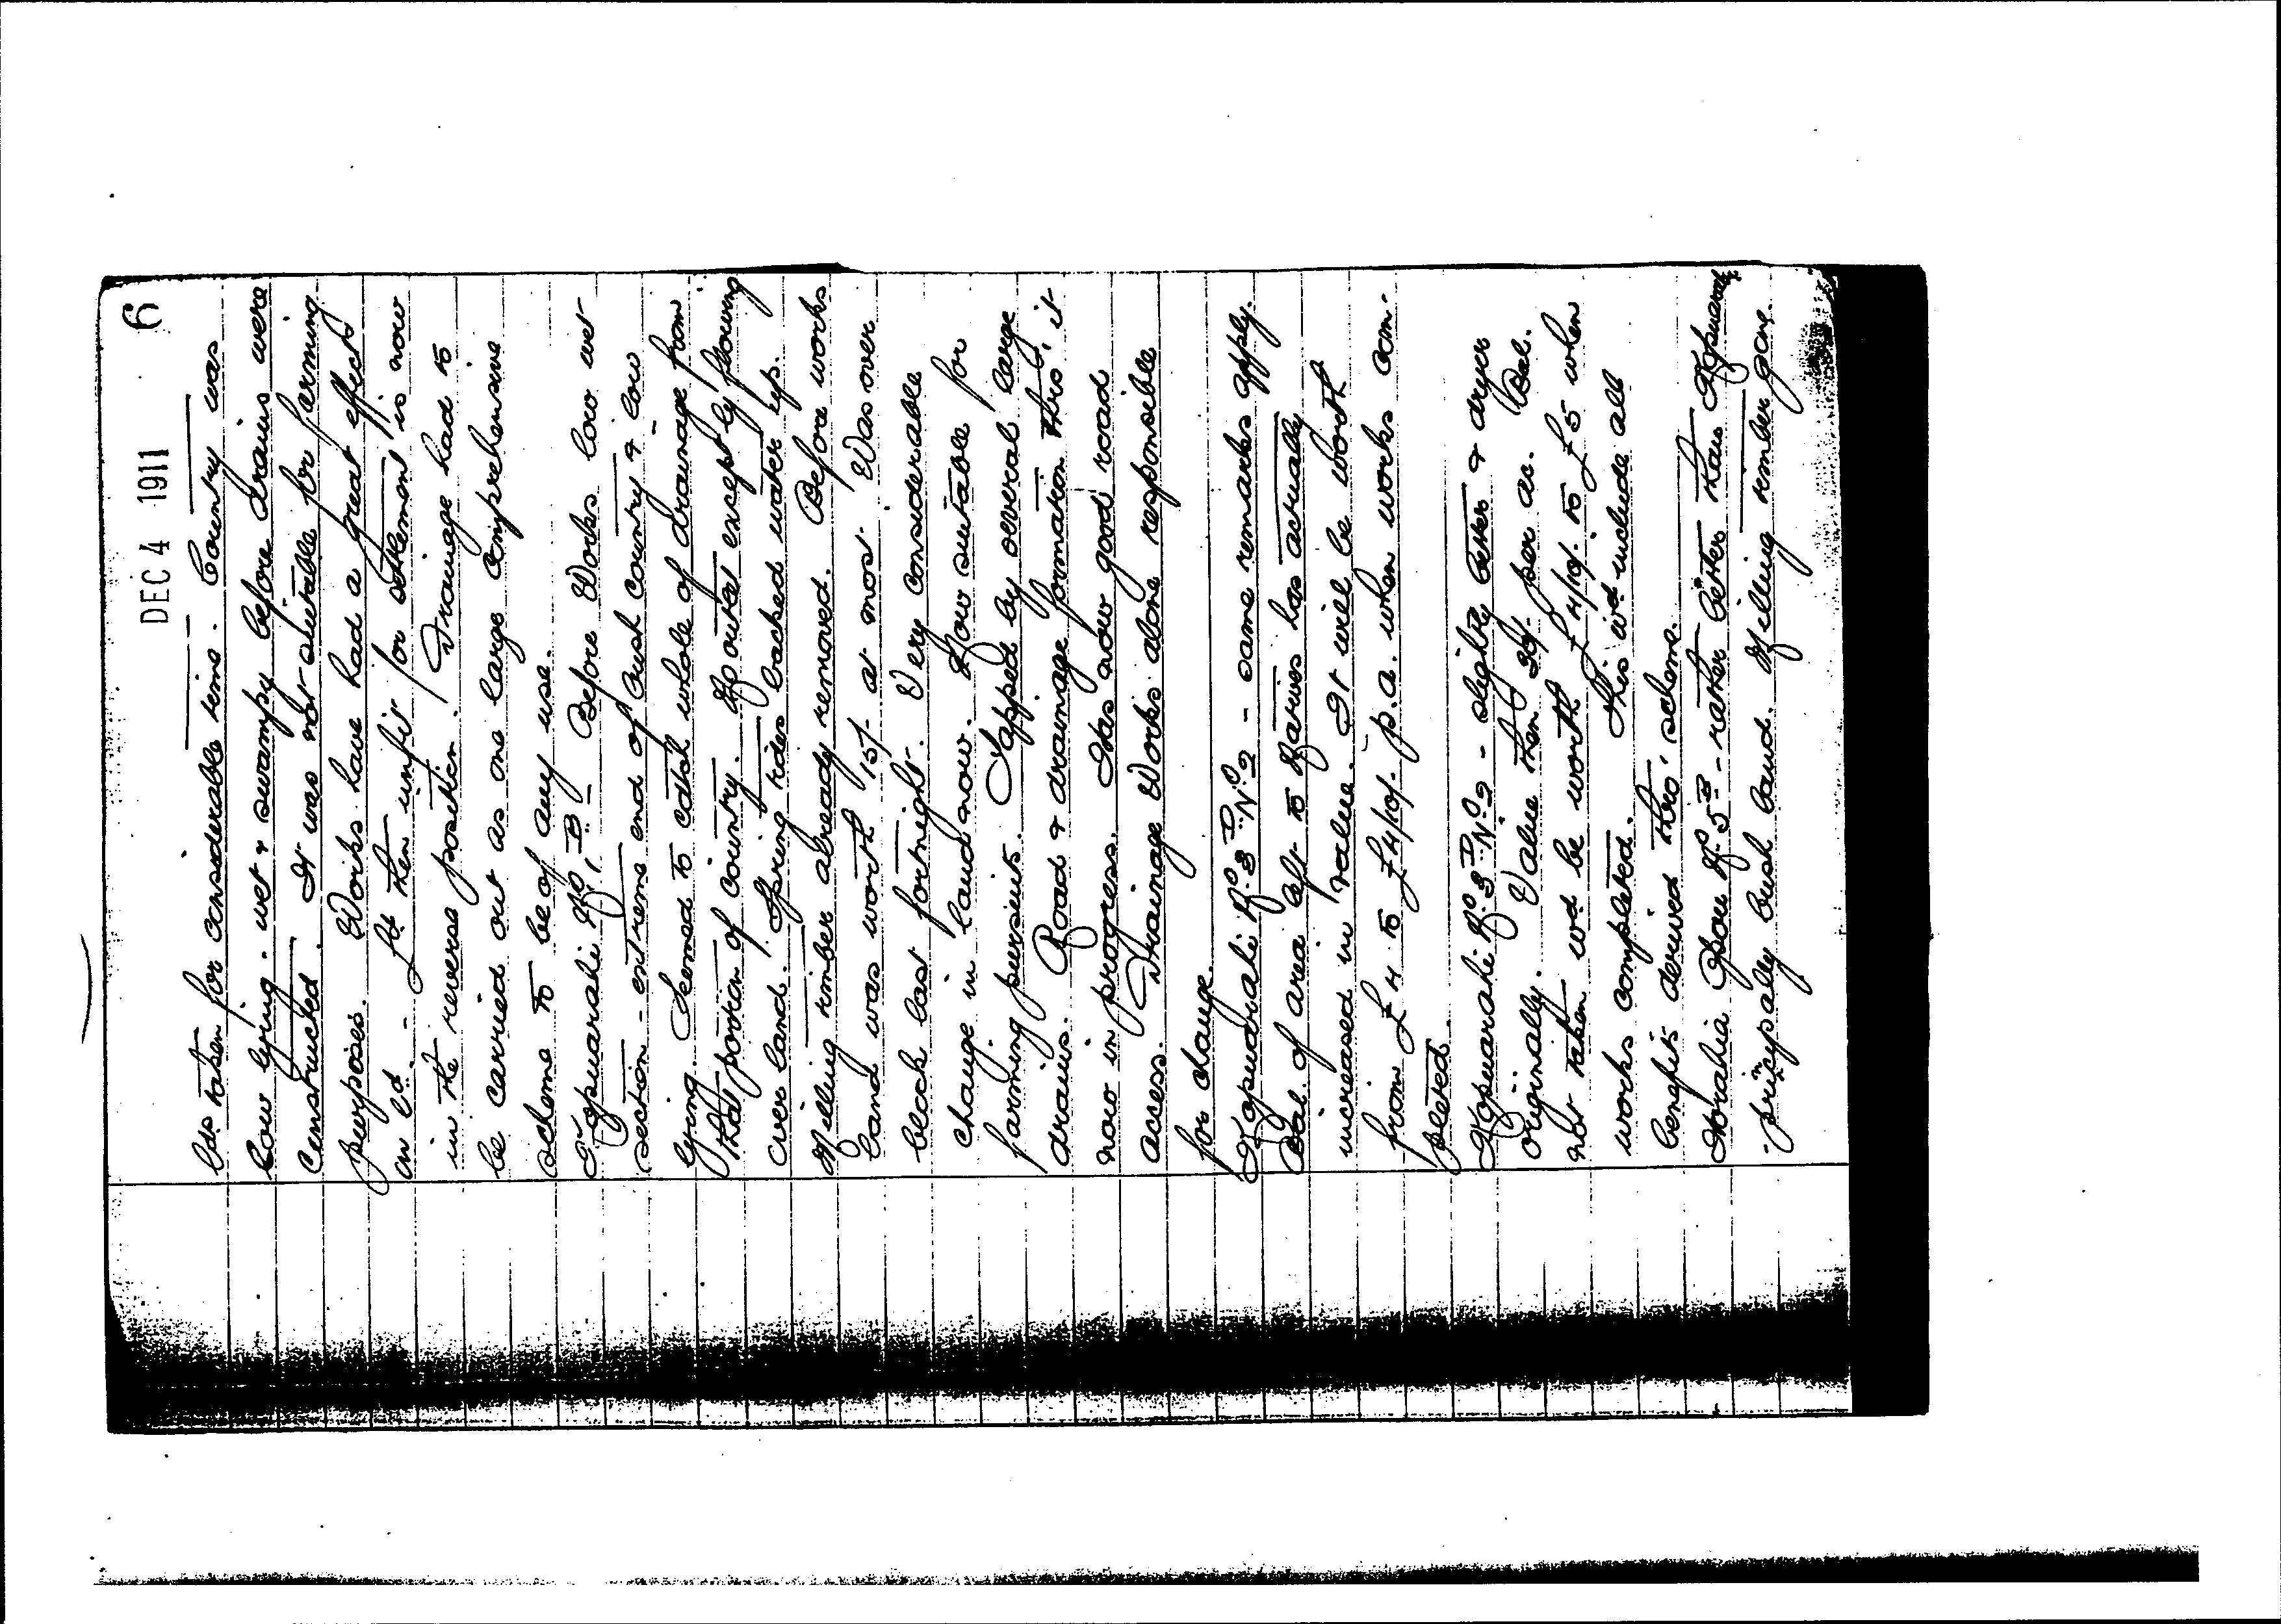 6
DEC 4 1911
lds taken for considerable time. Country was
low lying - wet & swampy before drains were
Constructed. It was not suitable for farming
purposes. Works have had a great effect
on ld - ld then unfit for settlement is now
in the reverse position. Drainage had to
be carried out as one large comprehensive
scheme to be of any use.
Kopuarahi No 1 B - Before Works low wet
section - extreme end of bush country & low
lying. Seemed to catch whole of drainage from
that portion of country. No outlet except by flowing
over land. Spring tides backed water up.
Milling timber already removed. Before works
land was worth 15/- at most. Was over
block last fortnight. Very considerable
change in land now. Now suitable for
farming pursuits. Tapped by several large
drains. Road & drainage formation thro' it
now in progress. Has now good road
access. Drainage Works alone responsible
for change.
Kopuarahi No 3 D No 2 - same remarks apply.
Bal. of area left to Natives has actually
increased in value. It will be worth
from £4 to £4/10/- p.a. when works com-
pleted.
Kopuarahi No 3 D No 2 - slightly better & dryer
originally. Value then 30/- per ac. Bal.
not taken wd be worth £4/10/- to £5 when
works completed. This wd include all
benefits derived thro' scheme.
Horahia Opou No 5 B - rather better than Kopuarahi
- principally bush land. Milling timber gone.